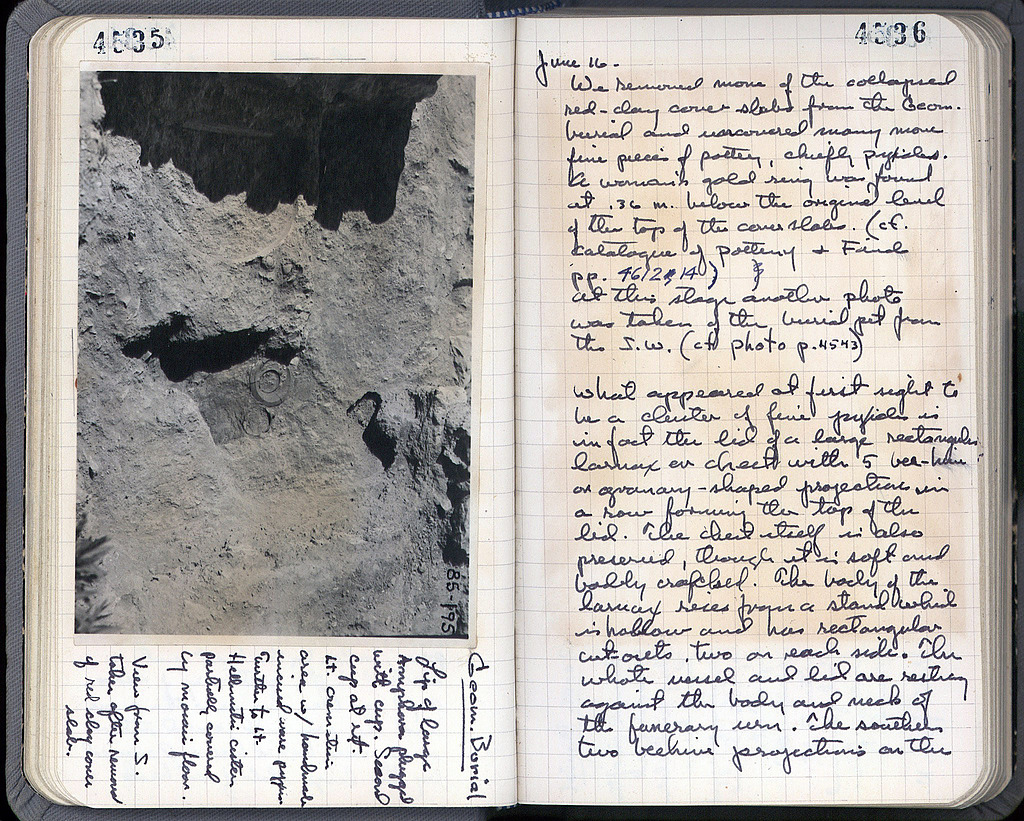 4535
85-195
Geom. Burial
Lip of large
Amphora plugged
with cup. Second
cup at rt.
Lt. cremation
area w/ handmade
incised ware pyxis
Further to lt.
Hellenistic cistern
partially covered
by mosaic floor.
View from S.
taken after removal
of red clay cover
slab.
4536
June 16.
We removed more of the collapsed
red-clay cover slabs from the Geom.
burial and uncovered many more
fine pieces of pottery, chiefly pyxides.
A woman's gold ring was found
at .36 m. below the original level
of the top of the cover slabs. (cf.
Catalogue of pottery + Finds
pp. 4612 14)
At this stage another photo
was taken of the burial pit from
the S.W. (cf. photo p. 4543)
What appeared at first sight to
be a cluster of fine pyxides is
in fact the lid of a large rectangular
larnax or chest with 5 bee-hive
or granary-shaped projections in
a row forming the top of the
lid. The chest itself is also
preserved, though it is soft and
badly crackled. The body of the
larnax rises from a stand which
is hollow and has rectangular
cut-outs, two on each side. The
whole vessel and lid are resting
against the body and neck of
the funerary urn. The southern
two beehive projections on the